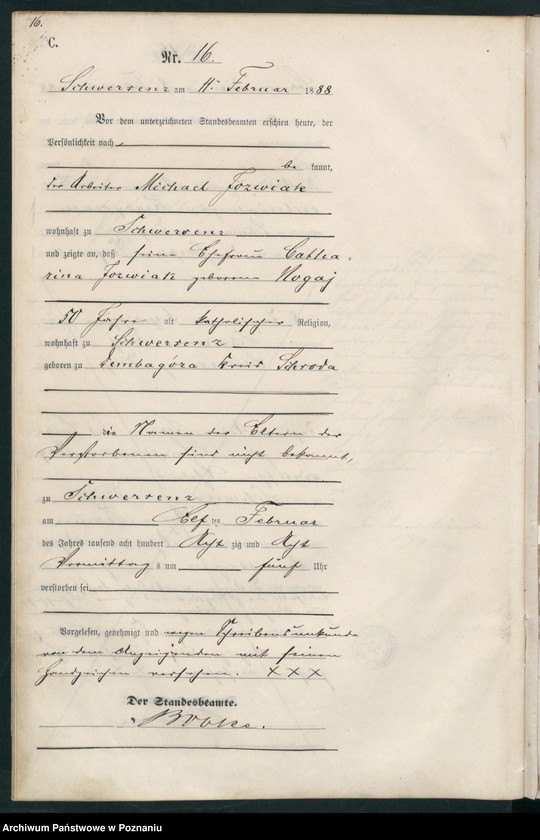 16.
C.
Nr. 16.
Schwersenz am 11ten Februar 1888
Vor dem unterzeichneten Standesbeamten erschien heute, der
Persönlichkeit nach
be kannt,
der Arbeiter Michael Jozwiak
wohnhaft zu Schwersenz
und zeigte an, daß seine Ehefrau Catha-
rina Jozwiak geborene Nogaj
50 Jahre alt katholischer Religion,
wohnhaft zu Schwersenz
geboren zu Dembagóra Kreis Schroda
die Namen der Eltern der
Verstorbenen sind nicht bekannt,
zu Schwersenz
am Elf ten Februar
des Jahres tausend acht hundert Acht zig und Acht
Vormittag s um fünf Uhr
verstorben sei
Vorgelesen, genehmigt und wegen Schreibensunkunde
von dem Anzeigenden mit seinen
Handzeichen versehen. X X X
Der Standesbeamte.
Archiwum Państwowe w Poznaniu